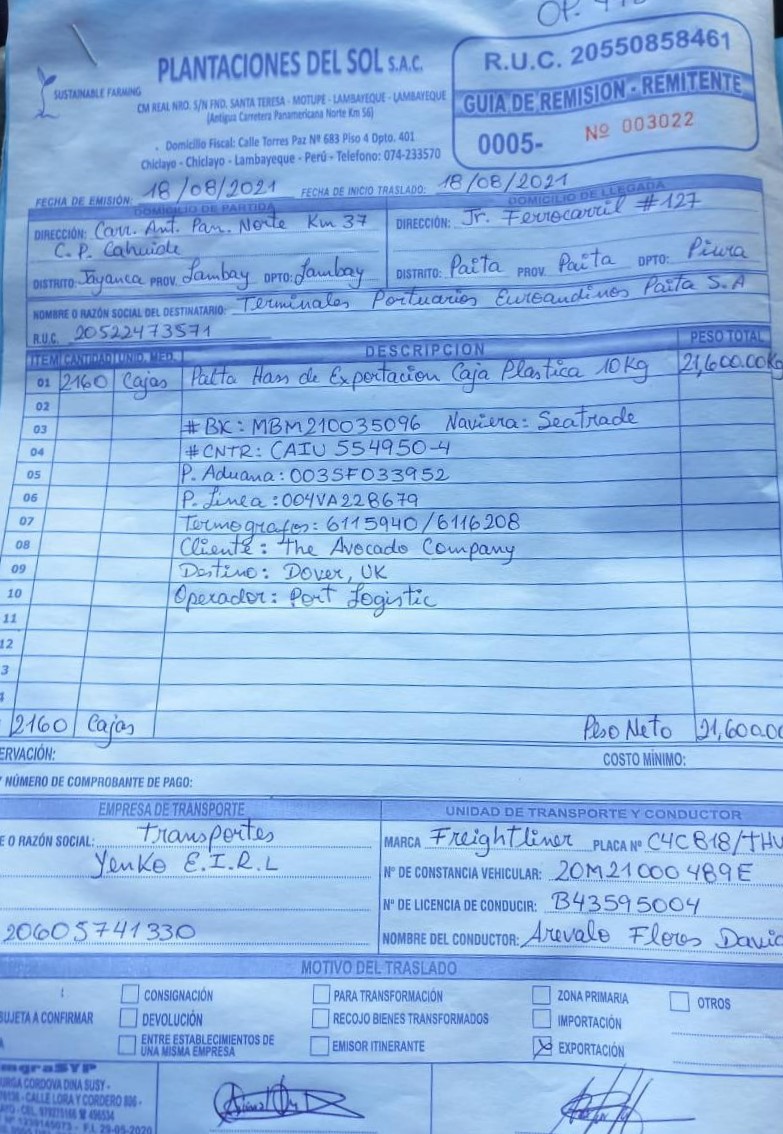 PLANTACIONES DEL SOL S.A.C.
SUSTAINABLE FARMING
CM REAL NRO. S/N FND. SANTA TERESA - MOTUPE - LAMBAYEQUE - LAMBAYEQUE
(Antigua Carretera Panamericana Norte Km 56)
. Domicilio Fiscal: Calle Torres Paz Nº 683 Piso 4 Dpto. 401
Chiclayo - Chiclayo - Lambayeque - Perú - Telefono: 074-233570
R.U.C. 20550858461
GUIA DE REMISION - REMITENTE
0005- Nº 003022
FECHA DE EMISIÓN: 18/08/2021 FECHA DE INICIO TRASLADO: 18/08/2021
DOMICILIO DE PARTIDA
DIRECCIÓN: Carr. Ant. Pan. Norte Km 37
C.P. Cahuide
DISTRITO: Jayanca PROV. Lambay DPTO: Lambay
DOMICILIO DE LLEGADA
DIRECCIÓN: Jr. Ferrocarril #127
DISTRITO: Paita PROV. Paita DPTO: Piura
NOMBRE O RAZÓN SOCIAL DEL DESTINATARIO: Terminales Portuarios Euroandinos Paita S.A
R.U.C. 20522473571
ITEM CANTIDAD UNID. MED. DESCRIPCION PESO TOTAL
01 2160 Cajas Palta Hass de Exportacion Caja Plastica 10Kg 21,600.00Kg
02
03 #BK: MBM210035096 Naviera: Seatrade
04 #CNTR: CAIU 554950-4
05 P. Aduana: 0035F033952
06 P. Linea: 004VA228679
07 Termografos: 6115940/6116208
08 Cliente: The Avocado Company
09 Destino: Dover, UK
10 Operador: Port Logistic
11
12
3
2160 Cajas Peso Neto 21,600.00
ERVACIÓN: COSTO MÍNIMO:
Y NÚMERO DE COMPROBANTE DE PAGO:
EMPRESA DE TRANSPORTE
E O RAZÓN SOCIAL: Transportes
Yenko E.I.R.L
20605741330
UNIDAD DE TRANSPORTE Y CONDUCTOR
MARCA Freightliner PLACA Nº C4C818/THU
Nº DE CONSTANCIA VEHICULAR: 20M21000489E
Nº DE LICENCIA DE CONDUCIR: B43595004
NOMBRE DEL CONDUCTOR: Arevalo Flores David
MOTIVO DEL TRASLADO
CONSIGNACIÓN PARA TRANSFORMACIÓN ZONA PRIMARIA OTROS
SUJETA A CONFIRMAR DEVOLUCIÓN RECOJO BIENES TRANSFORMADOS IMPORTACIÓN
ENTRE ESTABLECIMIENTOS DE UNA MISMA EMPRESA EMISOR ITINERANTE EXPORTACIÓN
CORDOVA DINA SUSY -
- CALLE LORA Y CORDERO